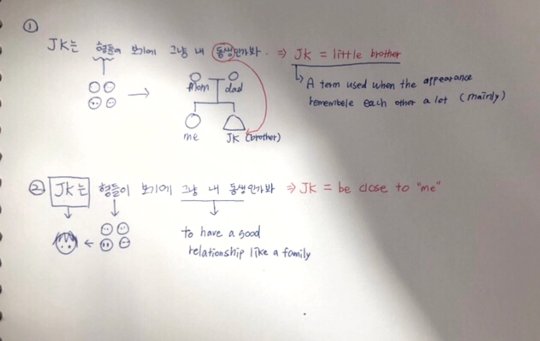 ①
JK는 형들이 보기에 그냥 내 동생인가봐. ⇒ JK = little brother
mom dad
me JK (brother)
A term used when the appearance
remembele each other a lot (mainly)
② JK는 형들이 보기에 그냥 내 동생인가봐 ⇒ JK = be close to "me"
to have a good
relationship like a family